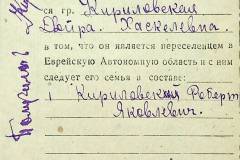 ся гр. Кириловская
Двойра. Хаскелевна.
в том, что он является переселенцем в
Еврейскую Автономную область и с ним
следует его семья в составе:
1 Кириловский Роберт
Яковлевич.